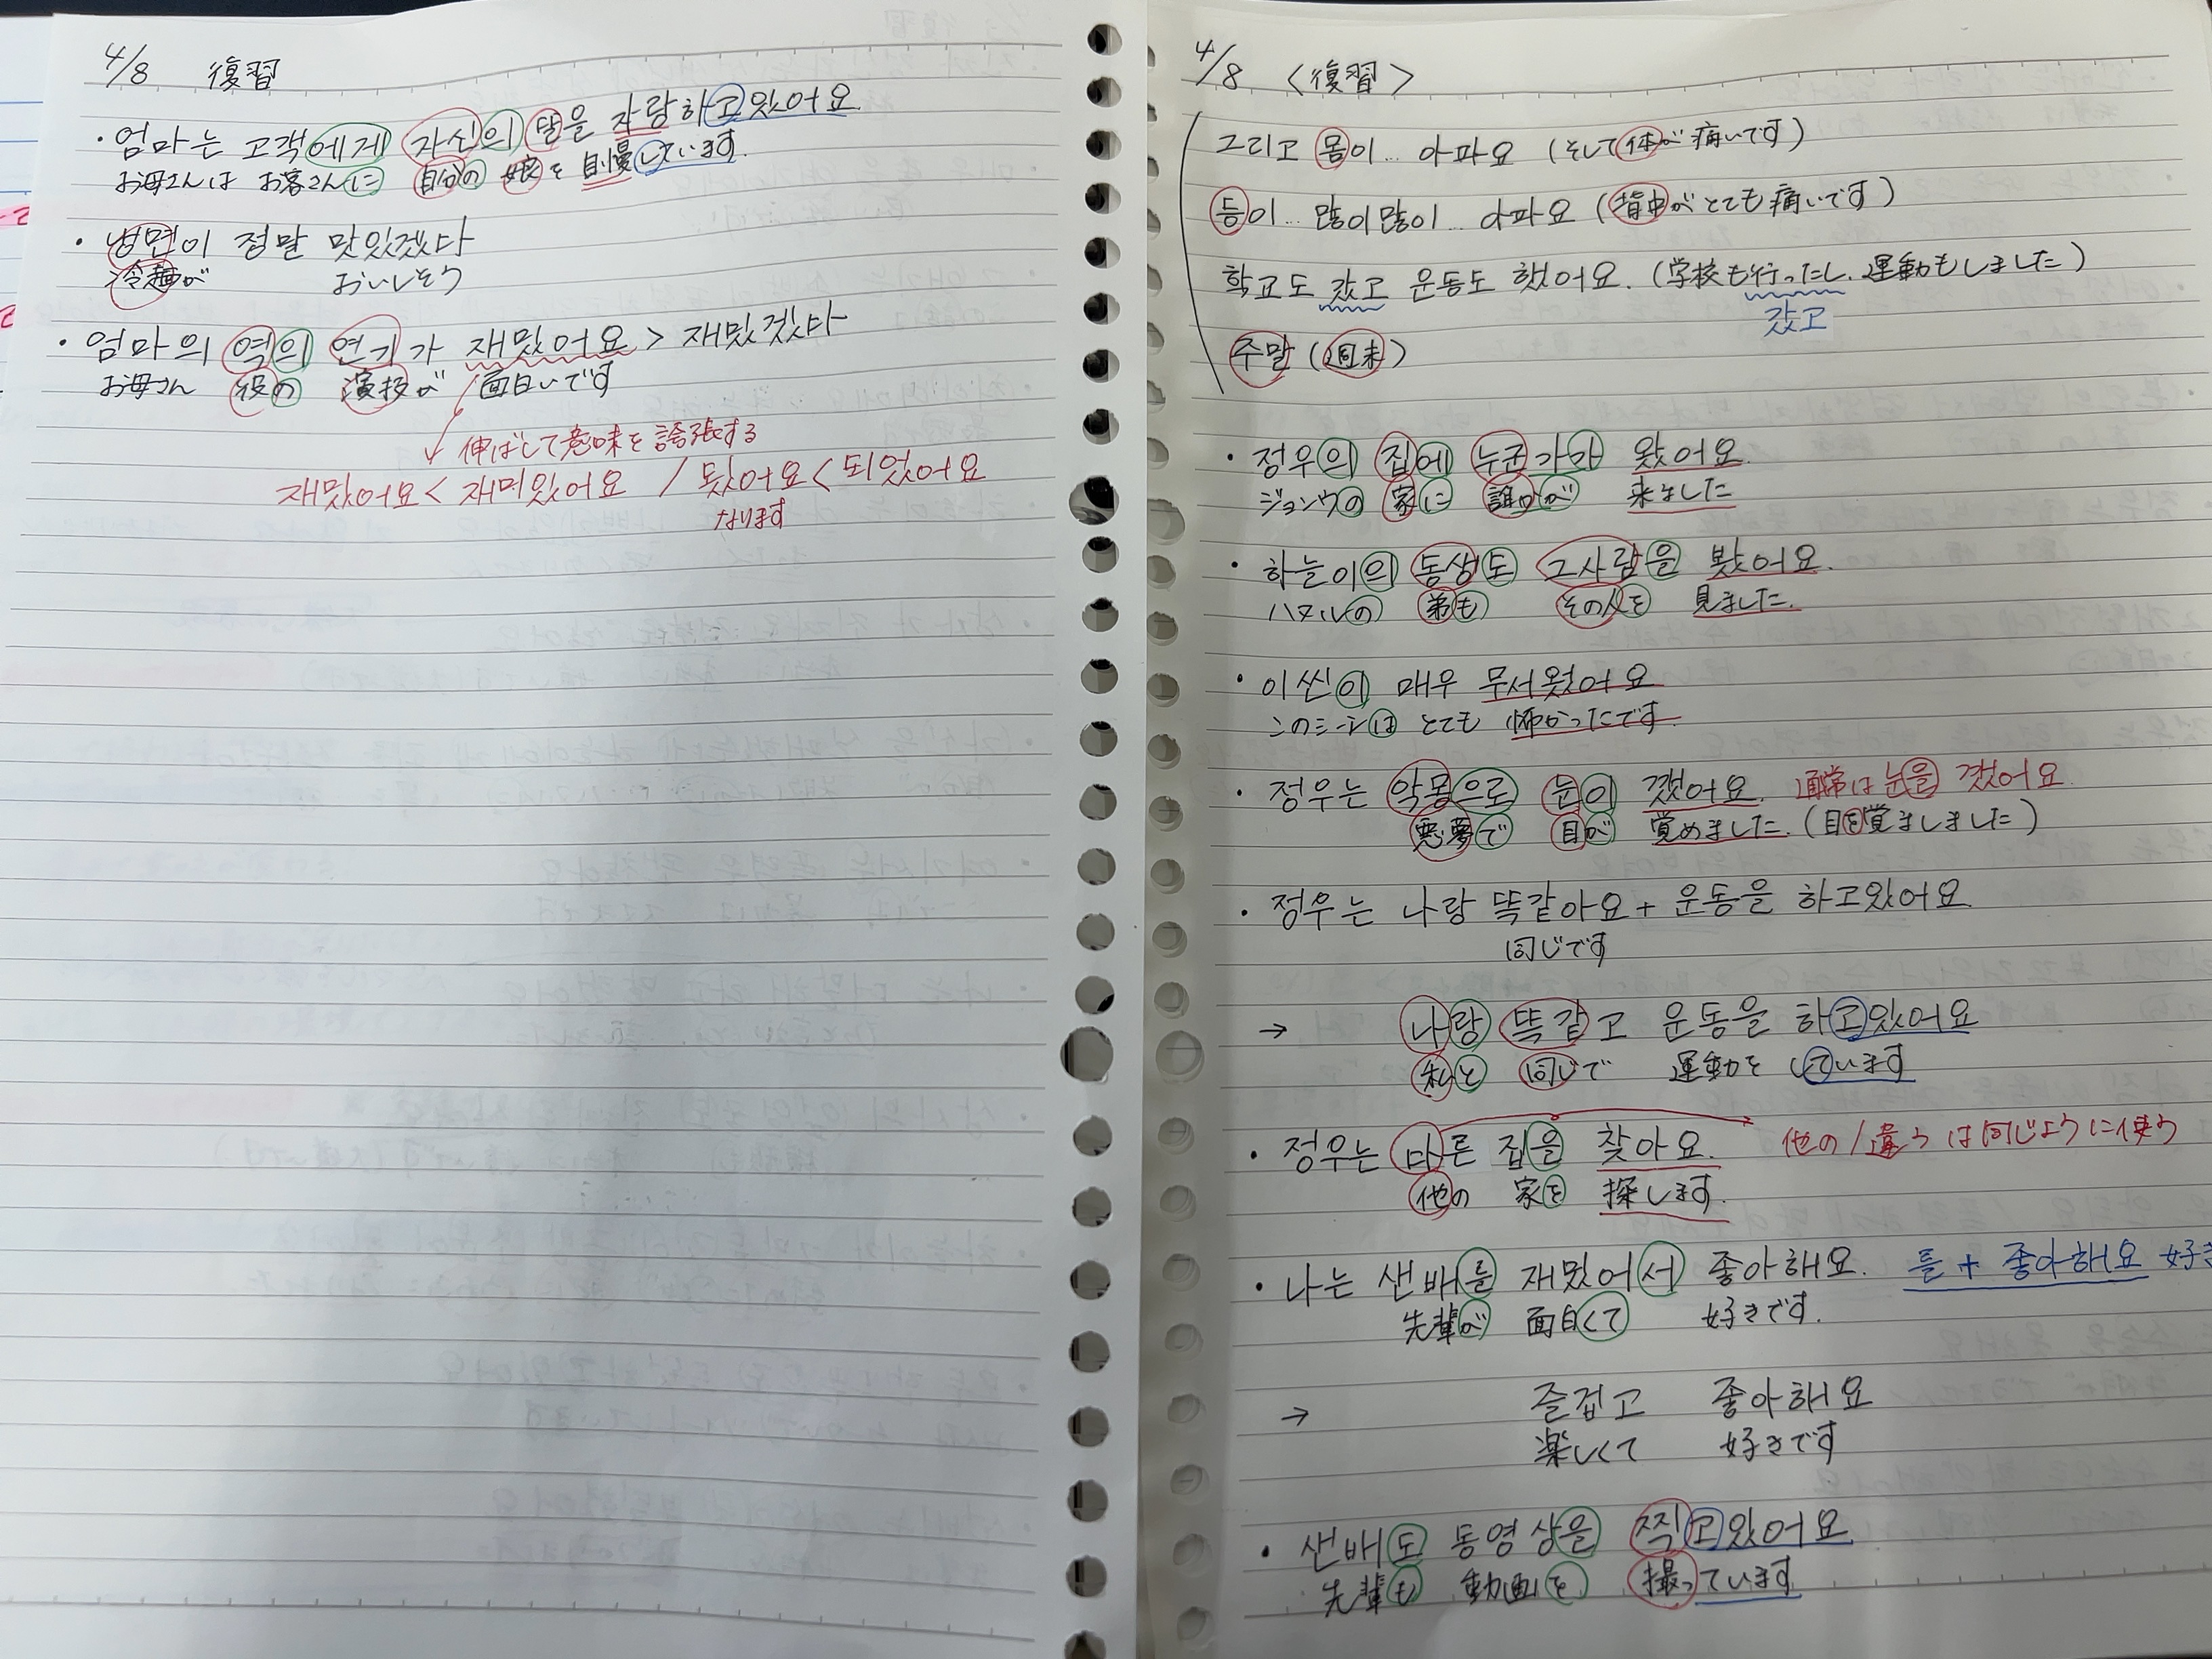 4/8 復習
・엄마는 고객에게 자신의 딸을 자랑하고있어요
お母さんは お客さんに 自分の 娘を 自慢しています
・냉면이 정말 맛있겠다
冷麺が おいしそう
・엄마의 역의 연기가 재밌어요 > 재밌겠다
お母さん 役の 演技が 面白いです
伸ばして意味を誇張する
재밌어요 < 재미있어요 / 됬어요 < 되었어요
なります
4/8 <復習>
그리고 몸이... 아파요 (そして体が痛いです)
등이... 많이많이... 아파요 (背中がとても痛いです)
학교도 갔고 운동도 했어요. (学校も行ったし、運動もしました)
갔고
주말 (週末)
・정우의 집에 누군가가 왔어요
ジョンウの 家に 誰かが 来ました
・하늘이의 동생도 그사람을 봤어요.
ハヌルの 弟も その人を 見ました.
・이씬이 매우 무서웠어요
このシーンは とても 怖かったです.
・정우는 악몽으로 눈이 깼어요. 通常は눈을 깼어요
悪夢で 目が 覚めました. (目を覚ましました)
・정우는 나랑 똑같아요 + 운동을 하고있어요
同じです
→ 나랑 똑같고 운동을 하고있어요
私と 同じで 運動を しています
・정우는 다른 집을 찾아요. 他の/違う は同じように使う
他の 家を 探します.
・나는 선배를 재밌어서 좋아해요. 를 + 좋아해요 好き
先輩が 面白くて 好きです.
→ 즐겁고 좋아해요
楽しくて 好きです
・선배도 동영상을 찍고있어요
先輩も 動画を 撮っています